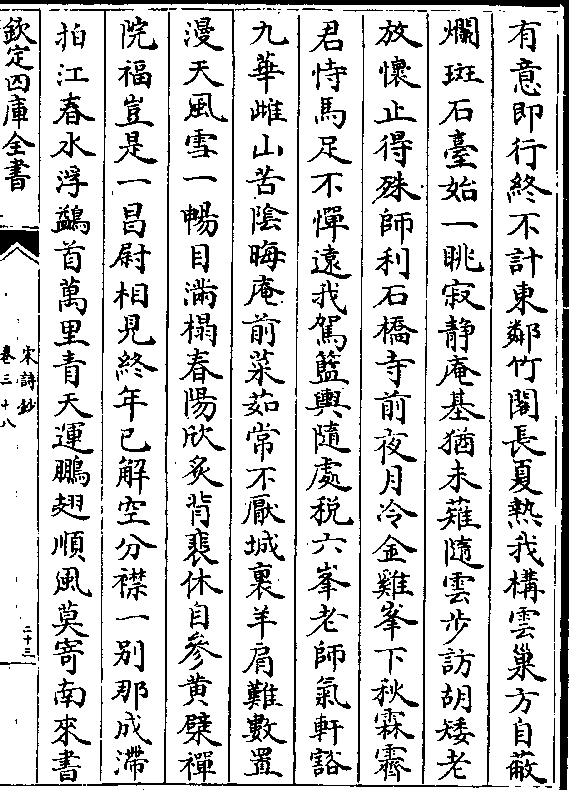 有意即行終不計東鄰竹閣長夏熱我構雲巢方自蔽
斕斑石臺始一眺寂静庵基猶未薙隨雲步訪胡矮老
放懷止得殊師利石橋寺前夜月冷金雞峯下秋霖霽
君恃馬足不憚遠我駕籃輿隨處税六峯老師氣軒豁
九華雌山苦陰晦庵前菜茹常不厭城裏羊肩難數置
漫天風雪一暢目滿榻春陽欣炙背裴休自參黄檗禪
院福豈是一昌尉相見終年已解空分襟一别那成滯
拍江春水浮鷁首萬里青天運鵬翅順風莫寄南來書
欽定四庫全書
宋詩鈔
卷三十八
二十三